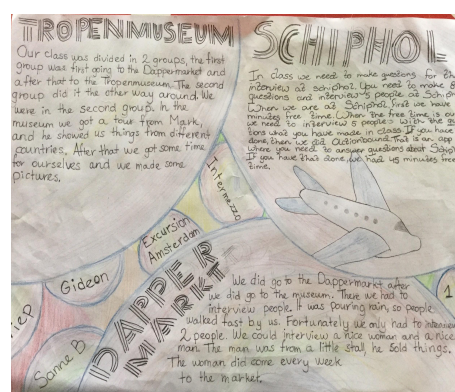 TROPENMUSEUM
Our class was divided in 2 groups, the first
group was first going to the Dappermarkt and
after that to the Tropenmuseum. The second
group did it the other way around. We
were in the second group. In the
museum we got a tour from Mark,
and he showed us things from different
countries. After that we got some time
for ourselves and we made some
pictures.
SCHIPHOL
In class we need to make questions for the
interview at schiphol. You need to make
questions and interview 5 people at Schiphol
When we are at Schiphol first we have
minutes free time. When the free time is over
we need to interview 5 people with the
tions what you have made in class If you have
done, then we did Actionbound. That is an app
where you need to answer questions about Schip
If you have that done, we had 45 minutes free
time.
Intermezzo
Excursion
Amsterdam
Gideon
iep
Sanne B
1
DAPPER
MARKT
We did go to the Dappermarkt after
we did go to the museum. There we had to
interview people. It was pouring rain, so people
walked fast by us. Fortunately we only had to interview
2 people. We could interview a nice woman and a nice
man. The man was from a little stall, he sold things.
The woman did come every week
to the market.